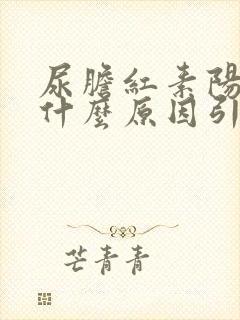 尿膽紅素陽
什麼原因引
芒青青